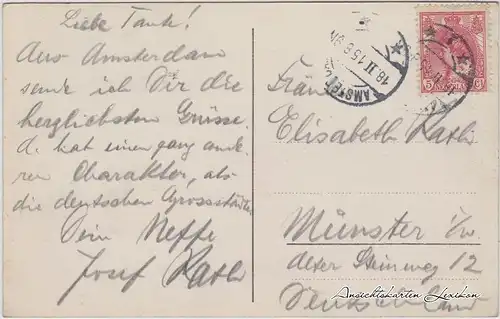 Liebe Tante!
Aus Amsterdam
sende ich Dir die
herzlichsten Grüsse.
A. hat einen ganz ande-
ren Charakter, als
die deutschen Grossstädte.
Dein Neffe
Josef
AMSTERDAM
18.II.15 6-9N
5 5
Elisabeth
Münster i/w.
Steinweg 12
Deutschland
Ansichtskarten Lexikon